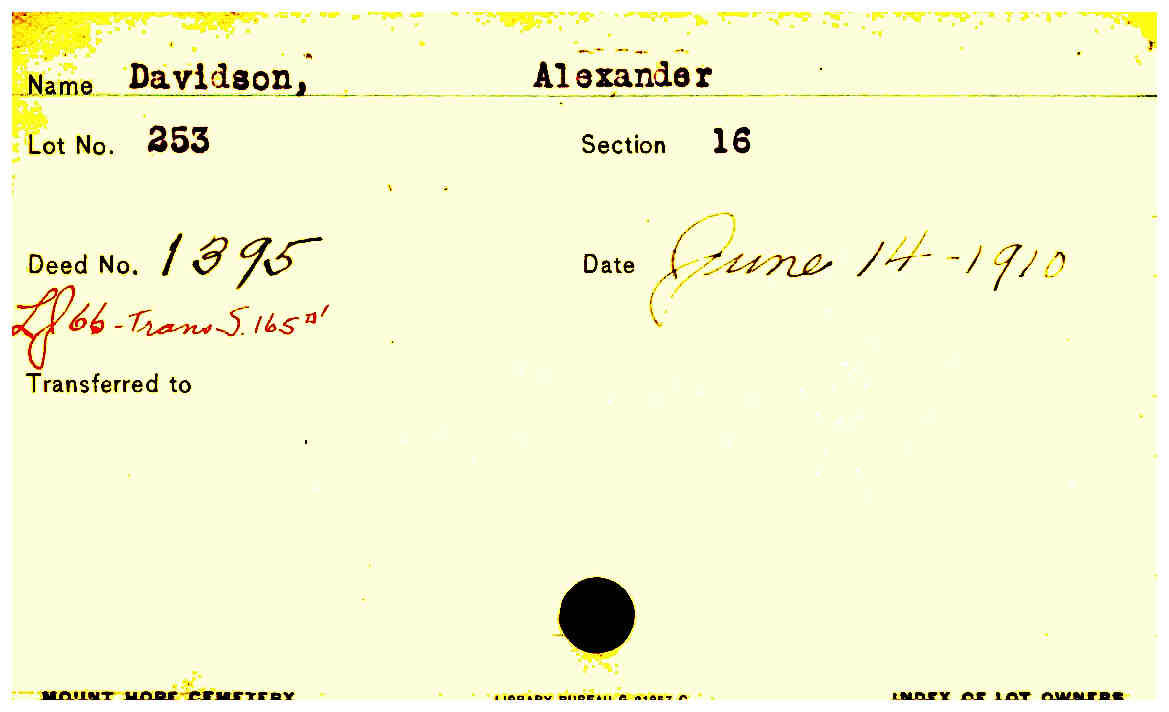 Name Davidson, Alexander
Lot No. 253 Section 16
Deed No. 1395 Date June 14-1910
66-Trans S. 165 □'
Transferred to
MOUNT HOPE CEMETERY LIBRARY BUREAU INDEX OF LOT OWNERS